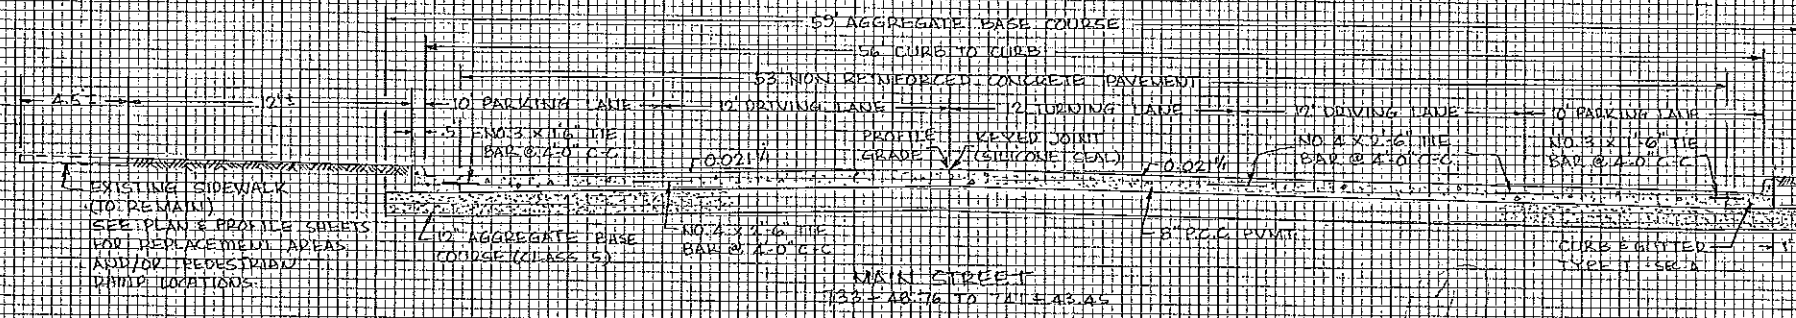 59' AGGREGATE BASE COURSE
56' CURB TO CURB
53' NON REINFORCED CONCRETE PAVEMENT
4.5'±
12'±
10' PARKING LANE
12' DRIVING LANE
12' TURNING LANE
12' DRIVING LANE
10' PARKING LANE
.5'
NO. 3 X 1'6" TIE
BAR @ 4'-0" C-C
PROFILE
GRADE
KEYED JOINT
(SILICONE SEAL)
NO. 4 X 2'-6" TIE
BAR @ 4'-0" C-C
NO. 3 X 1'-6" TIE
BAR @ 4'-0" C-C
0.021'/'
0.021'/'
EXISTING SIDEWALK
(TO REMAIN)
SEE PLAN & PROFILE SHEETS
FOR REPLACEMENT AREAS
AND/OR PEDESTRIAN
RAMP LOCATIONS
12" AGGREGATE BASE
COURSE (CLASS 5)
NO. 4 X 2'-6" TIE
BAR @ 4'-0" C-C
8" P.C.C. PVMT.
CURB & GUTTER
TYPE I - SEC. A
MAIN STREET
733+48.76 TO 741+43.45